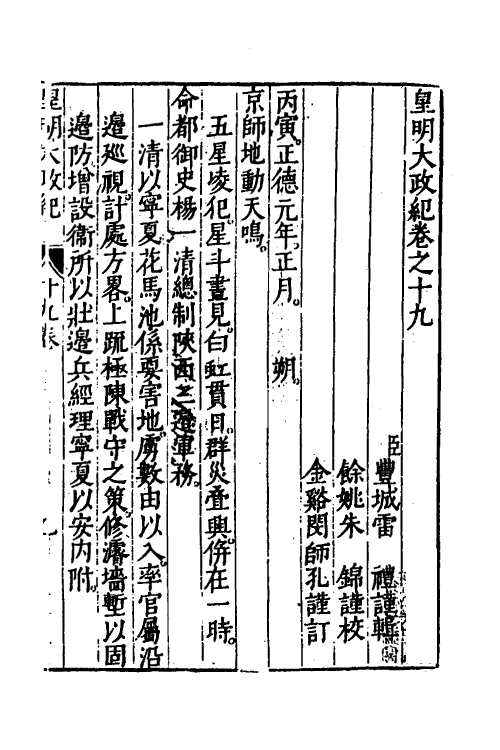 皇明大政紀卷之十九
臣豐城雷　禮謹輯
餘姚朱　錦謹校
金谿閔師孔謹訂
丙寅。正德元年。正月。　朔。
京師地動天鳴。
五星凌犯。星斗晝見。白虹貫日。群災疊興。倂在一時。
命都御史楊一清總制陝西三邊軍務。
一清以寧夏花馬池係要害地。虜數由以入。率官屬沿
邊巡視。計處方畧。上疏極陳戰守之策。修濬墻塹以固
邊防。增設衞所以壯邊兵。經理寧夏以安內附。
皇明大政紀　十九卷